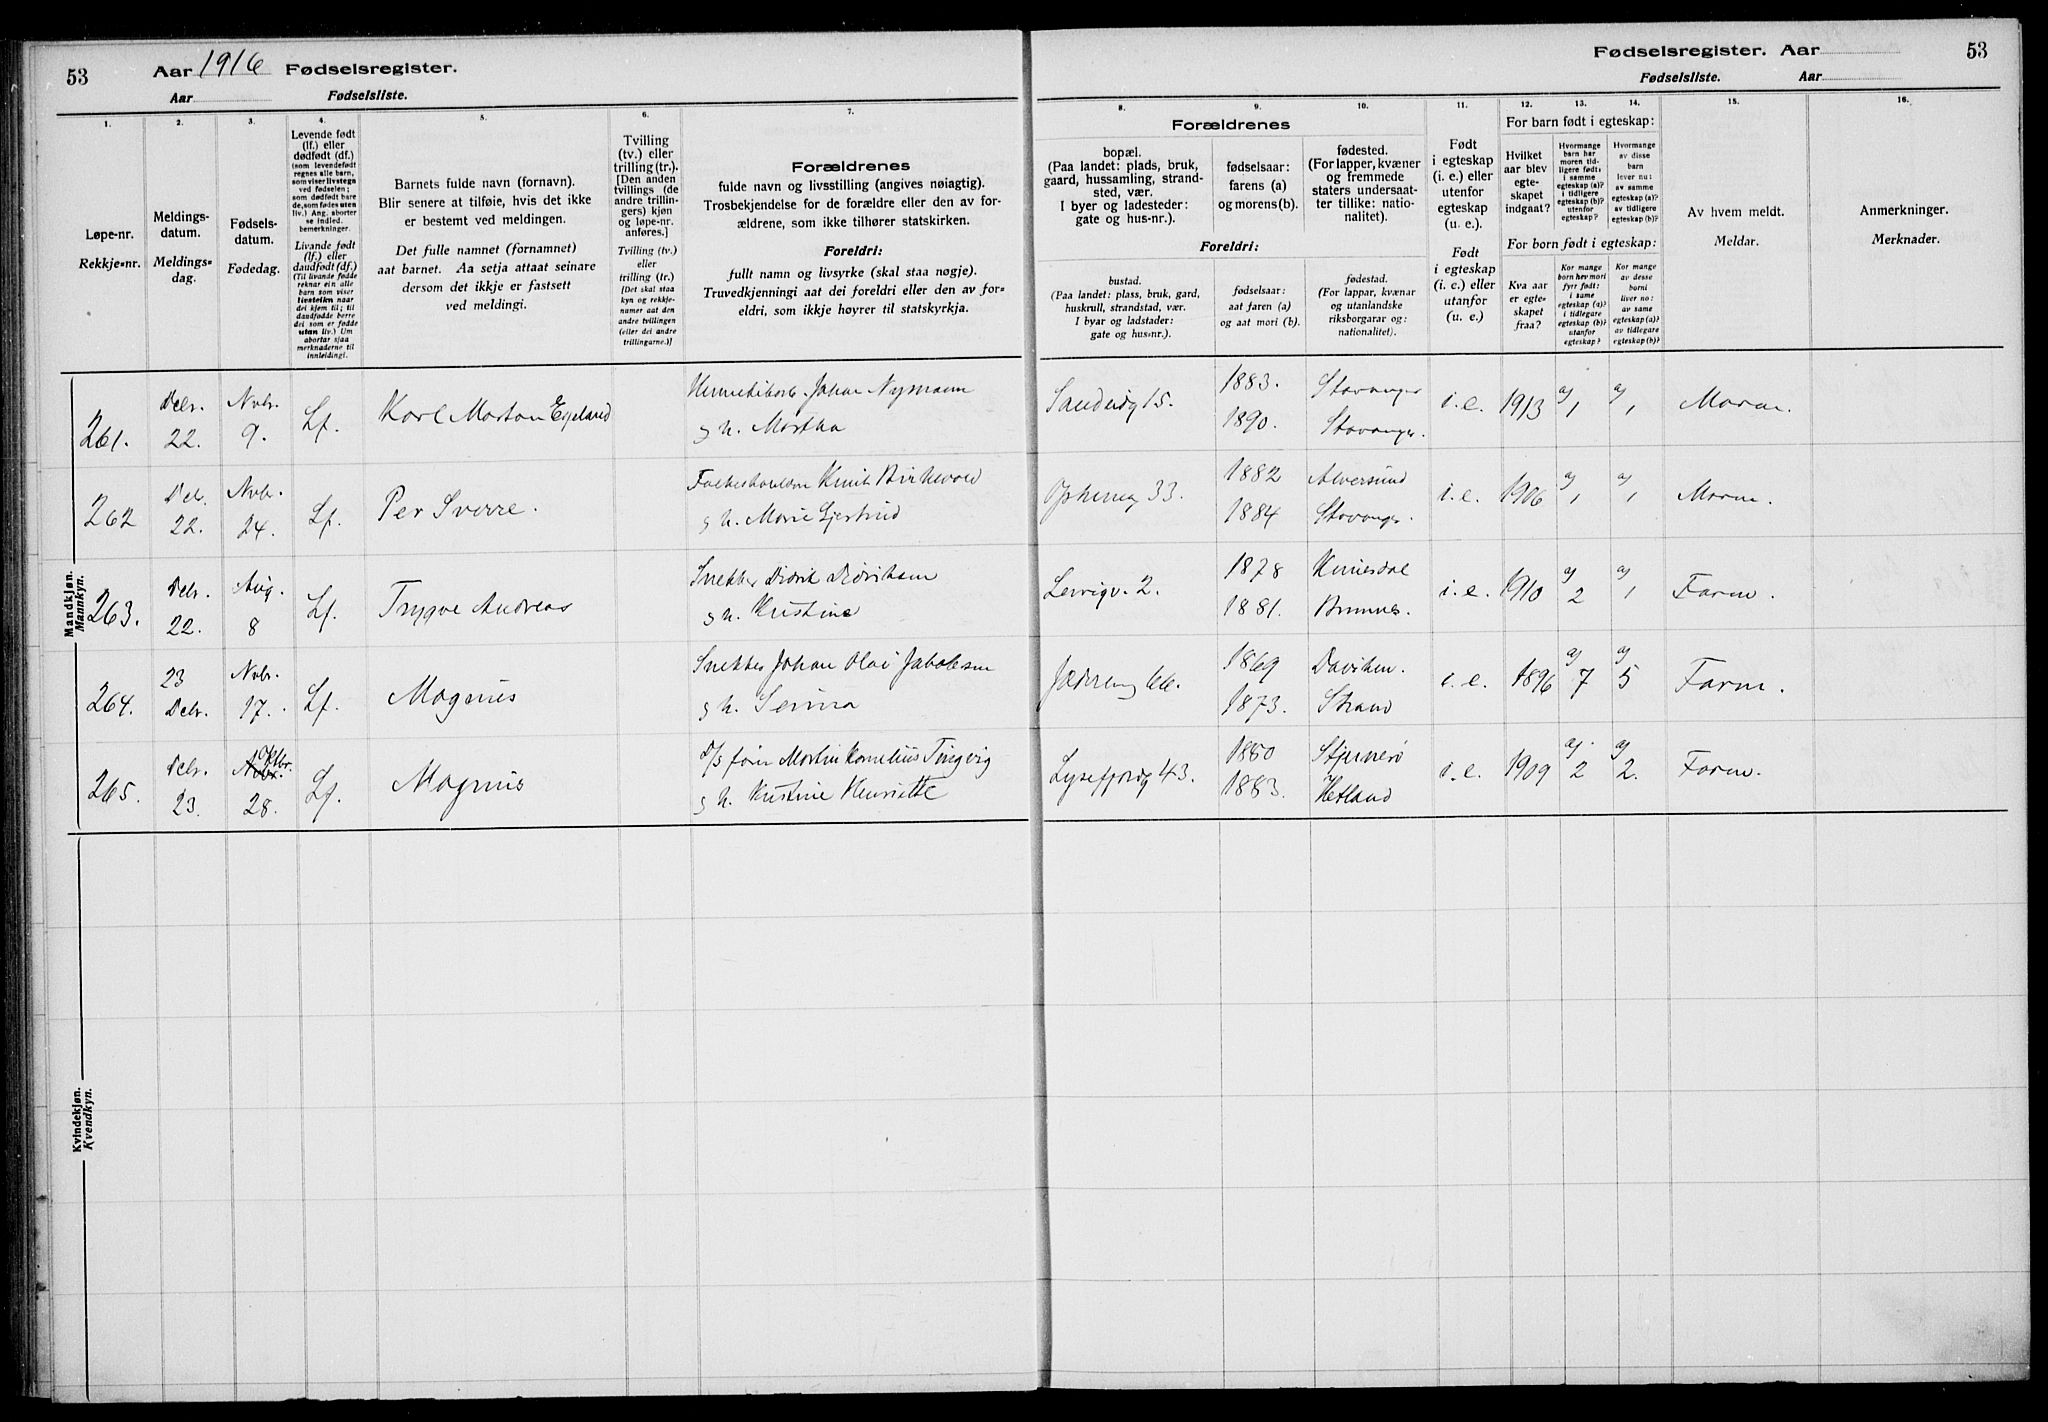 53 Aar 1916 Fødselsregister.
Aar Fødselsliste.
Fødselsregister. Aar 53
Fødselsliste. Aar
1. 2. 3. 4. 5. 6. 7. 8. 9. 10. 11. 12. 13. 14. 15. 16.
Løpe-nr.
Rekkje=nr.
Meldings-
datum.
Meldings=
dag.
Fødsels-
datum.
Fødedag.
Levende født
(lf.) eller
dødfødt (df.)
(som levendefødt
regnes alle barn,
som viser livstegn
ved fødselen;
som dødfødt bare
de, som fødes uten
liv.) Ang. aborter
se indled.
bemerkninger.
Livande født
(lf.) eller
daudfødt (df.)
(Til livande fødde
reknar ein alle
barn som viser
livsteikn naar
dei kjem til; til
daudfødde berre
dei som er fødde
utan liv.) Um
abortar sjaa
merknaderne til
innleidingi.
Barnets fulde navn (fornavn).
Blir senere at tilføie, hvis det ikke
er bestemt ved meldingen.
Det fulle namnet (fornamnet)
aat barnet. Aa setja attaat seinare
dersom det ikkje er fastsett
ved meldingi.
Tvilling
(tv.) eller
trilling (tr.).
[Den anden
tvillings (de
andre trillin-
gers) kjøn
og løpe-nr.
anføres.]
Tvilling (tv.)
eller
trilling (tr.)
[Det skal staa
kyn og rekkje-
numer aat den
andre tvillingen
(eller dei andre
trillingarne.)]
Forældrenes
fulde navn og livsstilling (angives nøiagtig).
Trosbekjendelse for de forældre eller den av for-
ældrene, som ikke tilhører statskirken.
Foreldri:
fullt namn og livsyrke (skal staa nøgje).
Truvedkjenningi aat dei foreldri eller den av for=
eldri, som ikkje høyrer til statskyrkja.
Forældrenes
bopæl.
(Paa landet: plads, bruk,
gaard, hussamling, strand-
sted, vær.
I byer og ladesteder:
gate og hus-nr.).
fødselsaar:
farens (a)
og morens (b).
fødested.
(For lapper, kvæner
og fremmede
staters undersaat-
ter tillike: natio-
nalitet).
Foreldri:
bustad.
(Paa landet: plass, bruk, gard,
huskrull, strandstad, vær.
I byar og ladstader:
gate og hus=nr.).
fødselsaar:
aat faren (a)
og aat mori (b).
fødestad.
(For lappar, kvænar
og utanlandske
riksborgarar og:
nationalitet).
Født
i egteskap
(i. e.) eller
utenfor
egteskap
(u. e.).
Født
i egteskap
(i. e.) eller
utanfor
(u. e.)
For barn født i egteskap:
Hvilket
aar blev
egte-
skapet
indgaat?
Hvormange
barn har
moren tid-
ligere født:
i samme
egteskap (a)?
i tidligere
egteskap (b)?
utenfor
egteskap?
Hvormange
av disse
barn
lever nu:
av samme
egteskap (a)?
av tidligere
egteskap (b)?
For born født i egteskap:
Kva aar
er egte=
skapet
fraa?
Kor mange
born hev mori
fyrr født:
i same
egteskap (a)?
i tidlegare
egteskap (b)?
utanfor
egteskap?
Kor mange
av desse
borni
liver no:
av same
egteskap (a)?
av tidlegare
egteskap (b)?
Av hvem meldt.
Meldar.
Anmerkninger.
Merknader.
Mandkjøn.
Mannkyn.
261. Debr. 22. Nvbr. 9. Lf. Karl Morton Egeland Johan Nymann
g h. Martha
15. 1883. Stavanger
1890. Stavanger. i.e. 1913 a/ 1 a/ 1 Moren.
262 Debr. 22. Nvbr. 24. Lf. Per Sverre. Knut Birkevold
g h. Marie Gjertrud
33. 1882 Alversund
1884 Stavanger. i.e. 1906 a/ 1 a/ 1 Moren.
263. Debr. 22. Aug. 8 Lf. Trygve Andreas Snekker Didrik Didriksen
g h. Kristine
Lervigv. 2. 1878 Kvinesdal
1881. i.e. 1910 a/ 2 a/ 1 Faren.
264. 23 Debr. Nvbr. 17. Lf. Magnus Snekker Johan Olai Jakobsen
g h. Serina
Jæderveg 66. 1869 Daviken.
1873. Strand i.e. 1896 a/ 7 a/ 5 Faren.
265. Debr. 23. Nvbr. Oktbr. 28. Lf. Magnus D/S fører Martin Kornelius Tingvig
g h. Kristine Henriette
Lysefjordg 43. 1880 Stjernerø
1883. Hetland i.e. 1909 a/ 2 a/ 2. Faren.
Kvindekjøn.
Kvendkyn.